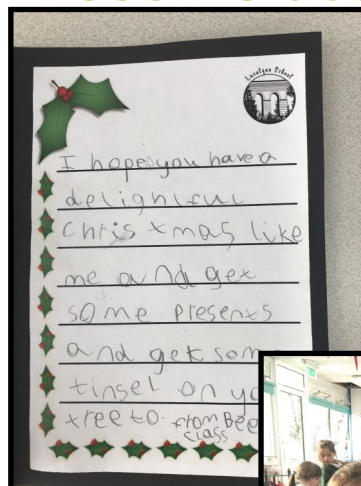 Luxulyan School
I hope you have a
delightful
Christmas like
me and get
some presents
and get som
tinsel on yo
tree to. from Bee
class